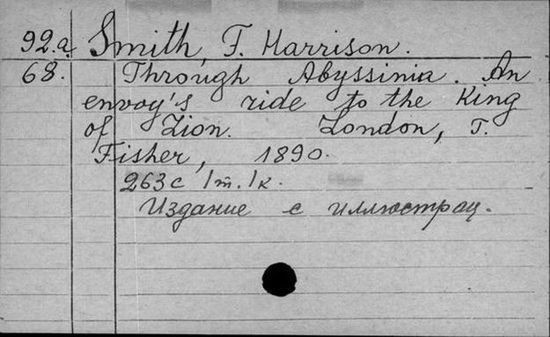 92.a. Smith, F. Harrison.
68. Through Abyssinia. An
envoy's ride to the King
of Zion. London, T.
Fisher, 1890.
263 с 1 т. 1 к.
Издание с иллюстрац.